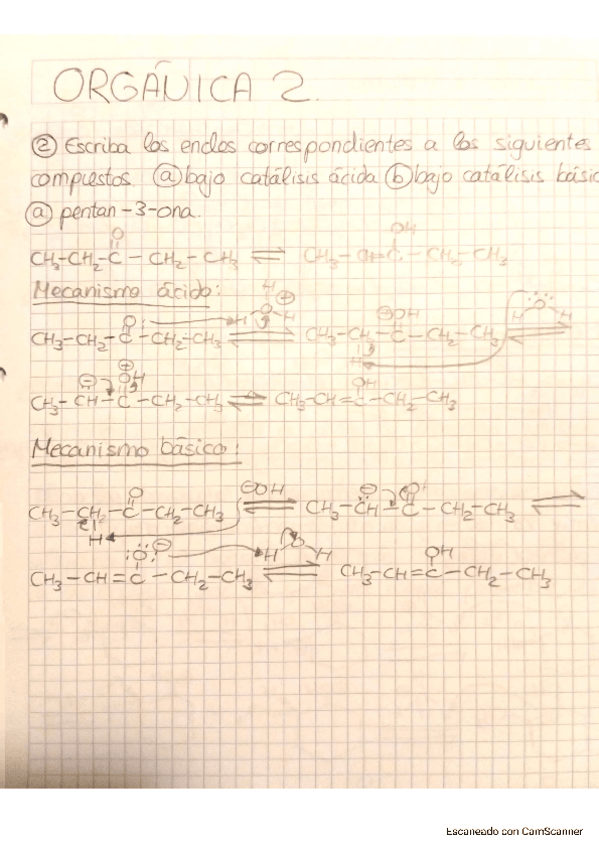 ORGÁNICA 2.
② Escriba los enoles correspondientes a los siguientes
compuestos. ⓐ bajo catálisis ácida ⓑ bajo catálisis básic
ⓐ pentan-3-ona.
O OH
CH₃-CH₂-C-CH₂-CH₃ ⇌ CH₃-CH=C-CH₂-CH₃
Mecanismo ácido:
CH₃-CH₂-C-CH₂-CH₃ ⇌ CH₃-CH-C-CH₂-CH₃ ⇌
CH₃-CH-C-CH₂-CH₃ ⇌ CH₃-CH=C-CH₂-CH₃
Mecanismo básico:
CH₃-CH₂-C-CH₂-CH₃ ⇌ CH₃-CH-C-CH₂-CH₃ ⇌
CH₃-CH=C-CH₂-CH₃ ⇌ CH₃-CH=C-CH₂-CH₃
Escaneado con CamScanner